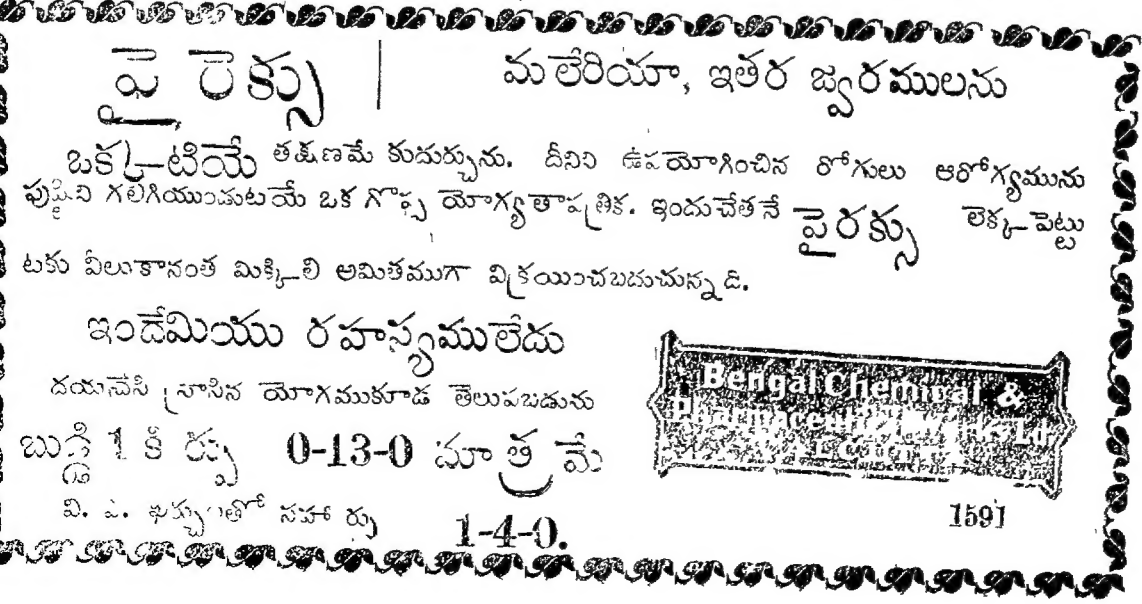 పై రెక్సు | మలేరియా, ఇతర జ్వరములను
ఒక్కటియే తక్షణమే కుదుర్చును. దీనిని ఉపయోగించిన రోగులు ఆరోగ్యమును
పుష్టిని గలిగియుండుటయే ఒక గొప్ప యోగ్యతాపత్రిక. ఇందుచేతనే పైరక్సు లెక్కపెట్టు
టకు వీలుకానంత మిక్కిలి అమితముగా విక్రయించబడుచున్నది.
ఇందేమియు రహస్యములేదు
దయచేసి వ్రాసిన యోగముకూడ తెలుపబడును
బుడ్డి 1 కి ర్పు 0-13-0 మాత్రమే
వి. పి. ఖర్చులతో సహా ర్పు 1-4-0.
Bengal Chemical &
Pharmaceutical Works Ld
CALCUTTA
1591